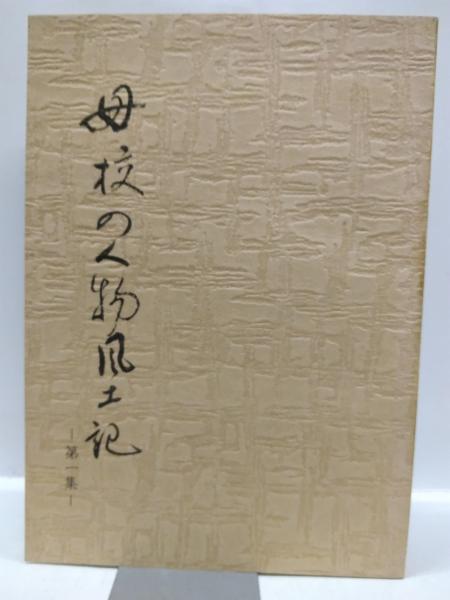 母校の人物風土記
−第一集−